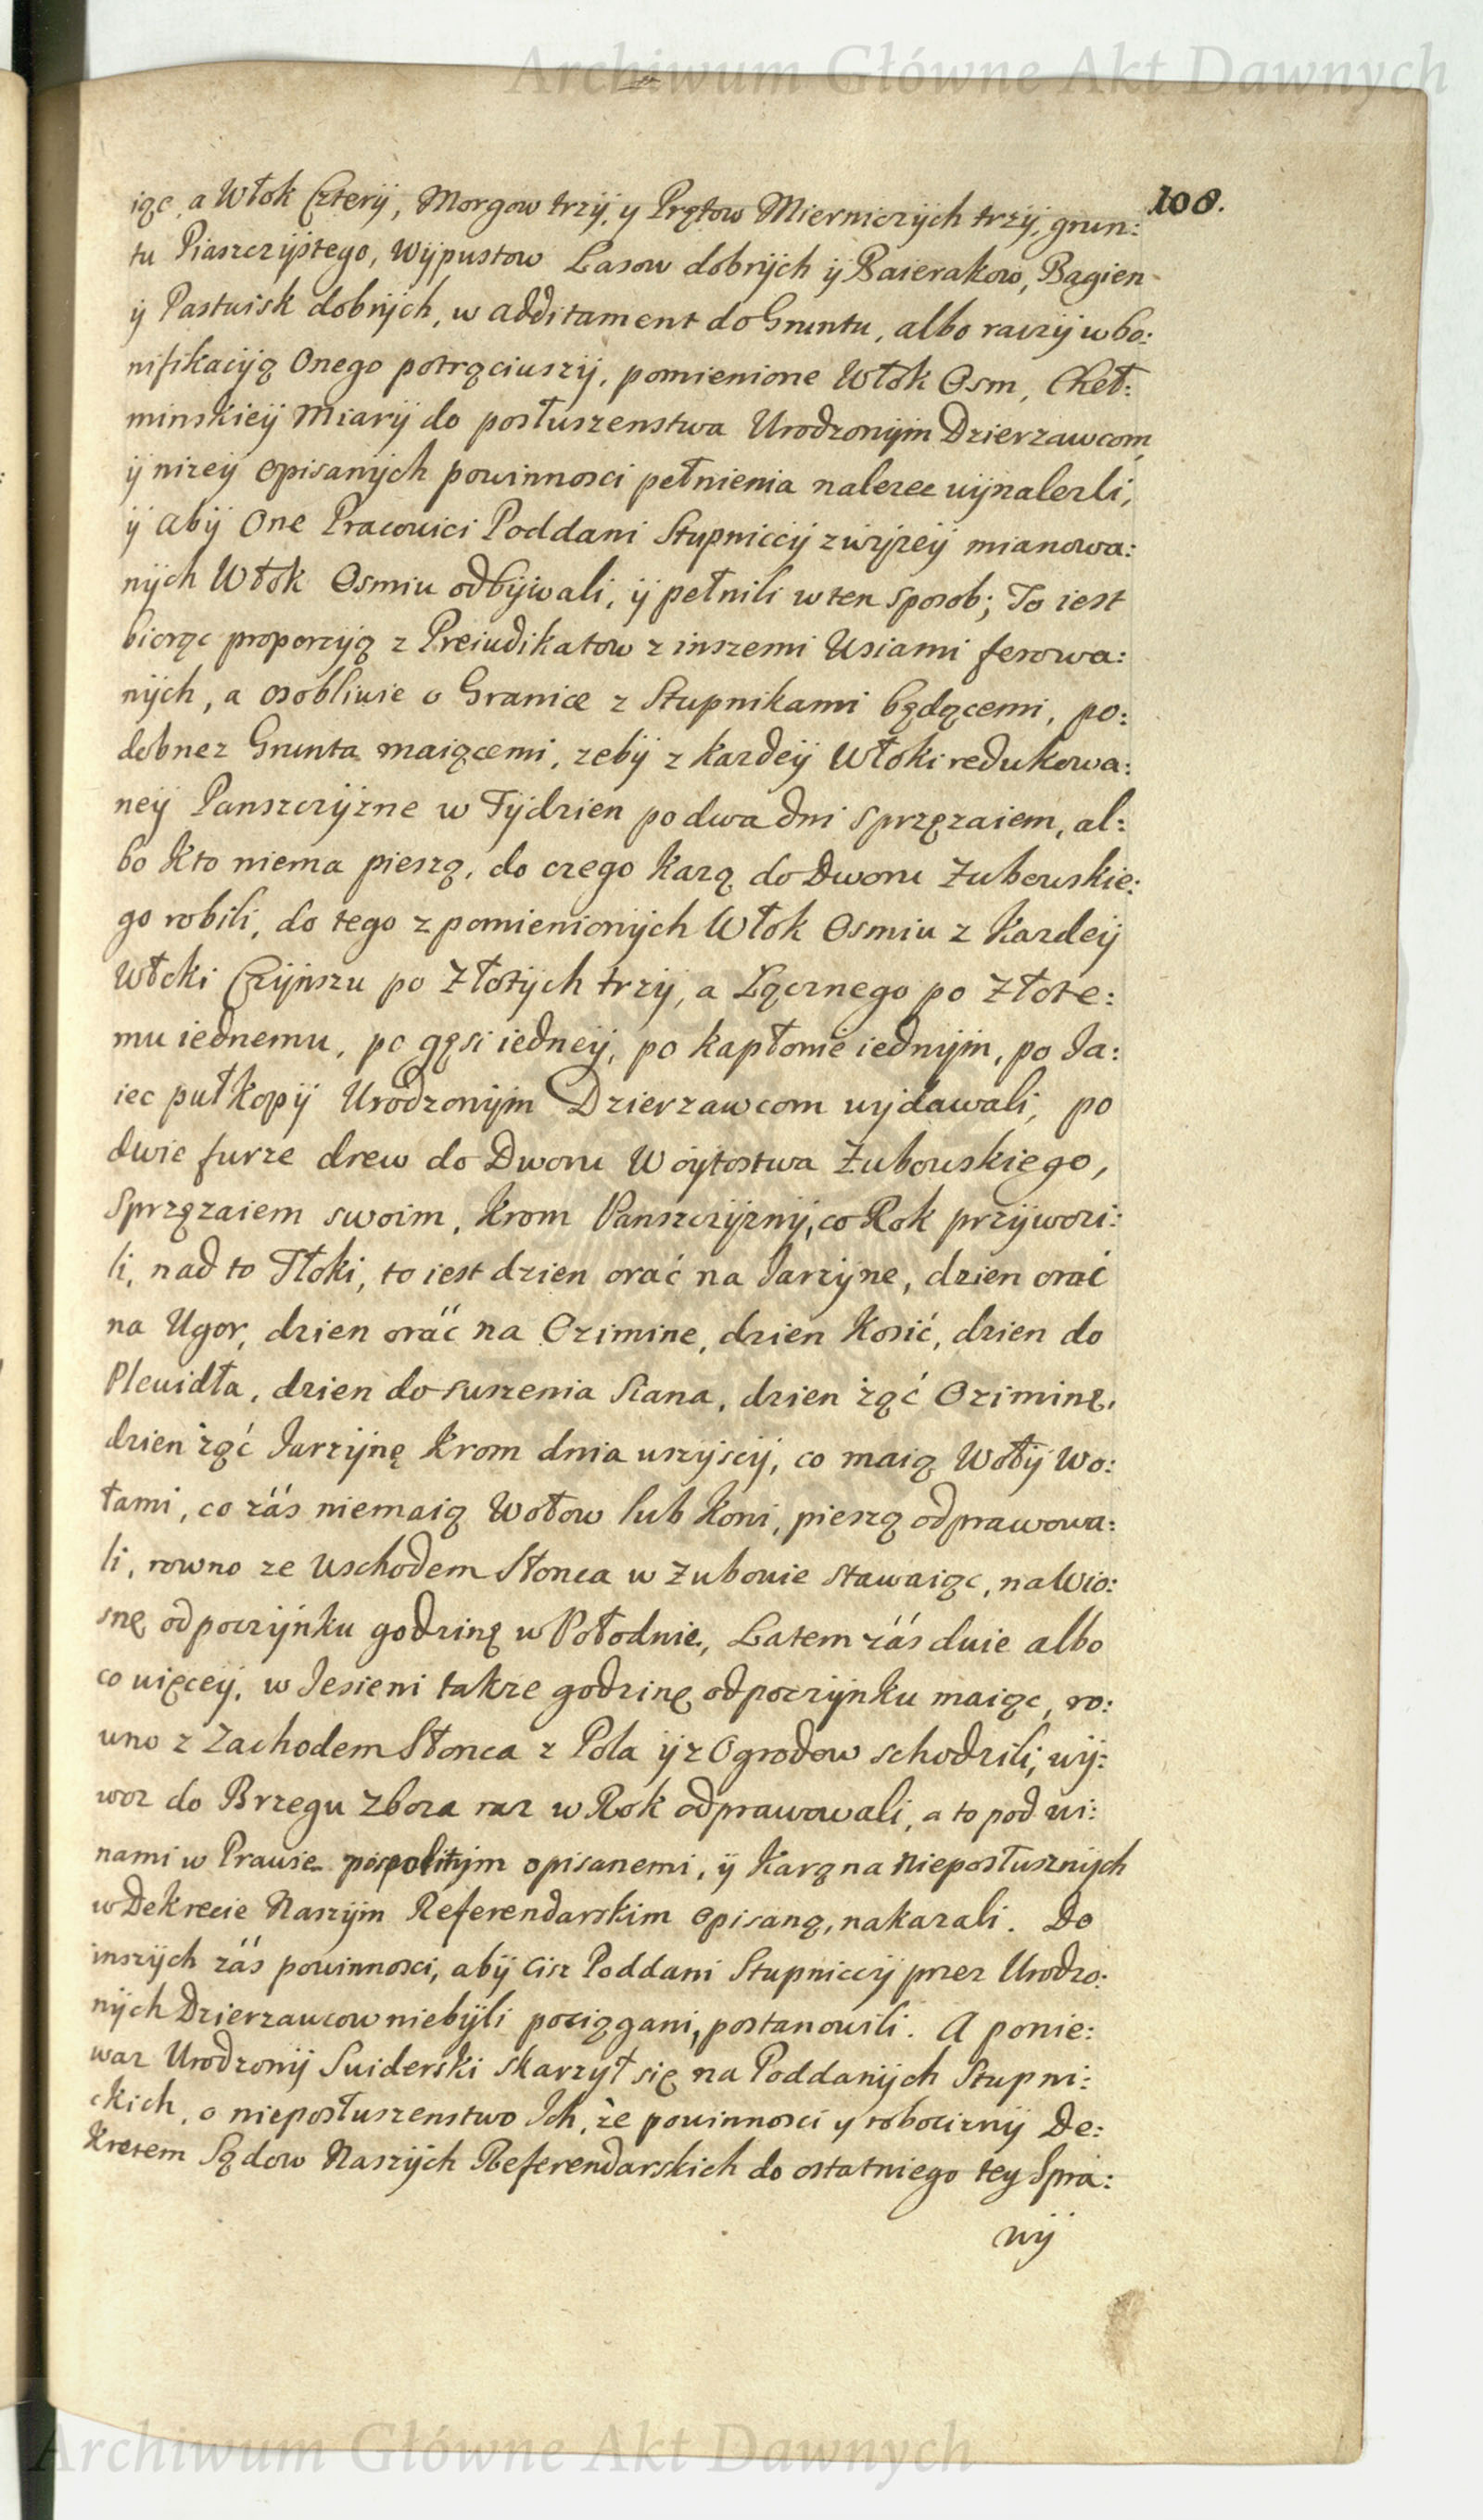 Archiwum Główne Akt Dawnych
108.
iąc, a Włok Czterÿ, Morgow trzÿ, y Prętow Mierniczÿch trzÿ, grun:
tu Piaszczÿstego, Wÿpustow Lasow dobrÿch ÿ Baierakow, Bagien
ÿ Pastwisk dobrÿch, w additament do Gruntu, albo raczÿ w bo:
nifikacÿą Onego potrąciwszÿ, pomienione Włok Osm, Cheł:
minskieÿ Miarÿ do posłuszenstwa Urodzonÿm Dzierzawcom
ÿ nizeÿ opisanÿch powinnosci pełnienia nalezec wÿnalezli,
ÿ abÿ One Pracowici Poddani Stupniccÿ zwÿzeÿ mianowa:
nÿch Włok Osmiu odbÿwali, ÿ pełnili w ten sposob; To iest
biorąc proporcÿą z Preiudikatow z inszemi Wsiami ferowa:
nÿch, a osobliwie o Granice z Stupnikami będącemi, po:
dobnez Grunta maiącemi, zebÿ z kazdeÿ Włoki redukowa:
neÿ Panszczÿzne w Tÿdzien po dwa dni sprzęzaiem, al:
bo kto niema pieszą, do czego kazą do Dworu Zubowskie:
go robili, do tego z pomienionÿch Włok Osmiu z Kazdeÿ
Włoki Czÿnszu po Złotÿch trzÿ, a Łącznego po Złote:
mu iednemu, po gęsi iedneÿ, po kapłonie iednÿm, po Ja:
iec pułkopÿ Urodzonÿm Dzierzawcom wÿdawali, po
dwie furze drew do Dworu Woÿtostwa Zubowskiego,
Sprzęzaiem swoim, krom Panszczÿznÿ, co Rok przÿwozi:
li, nad to Tłoki, to iest dzien orać na Jarzÿne, dzien orać
na Ugor, dzien orać na Ozimine, dzien kosić, dzien do
Plewidła, dzien do suszenia Siana, dzien żąć Oziminę,
dzien żąć Jarzÿnę krom dnia wszÿscÿ, co maią Wołÿ Wo:
łami, co záś niemaią Wołow lub Koni, pieszą odprawowa:
li, rowno ze Wschodem Słonca w Zubowie stawaiąc, na Wio:
snę odpoczÿnku godzinę w Połodnie, Latem záś dwie albo
co więceÿ, w Jesieni takze godzinę odpoczÿnku maiąc, ro:
wno z Zachodem Słonca z Pola ÿ z Ogrodow schodzili, wÿ:
woz do Brzegu Zboza raz w Rok odprawowali, a to pod wi:
nami w Prawie pospolitÿm opisanemi, ÿ Karą na Nieposłusznÿch
w Dekrecie Naszÿm Referendarskim opisaną, nakazali. Do
inszÿch záś powinnosci, abÿ ciz Poddani Stupniccÿ przez Urodzo:
nÿch Dzierzawcow niebÿli pociągani, postanowili. A ponie:
waz Urodzonÿ Swiderski skarzył się na Poddanÿch Stupni:
ckich, o nieposłuszenstwo Ich, że powinnosci y robociznÿ De:
kretem Sądow Naszÿch Referendarskich do ostatniego tey Spra:
wÿ
Archiwum Główne Akt Dawnych